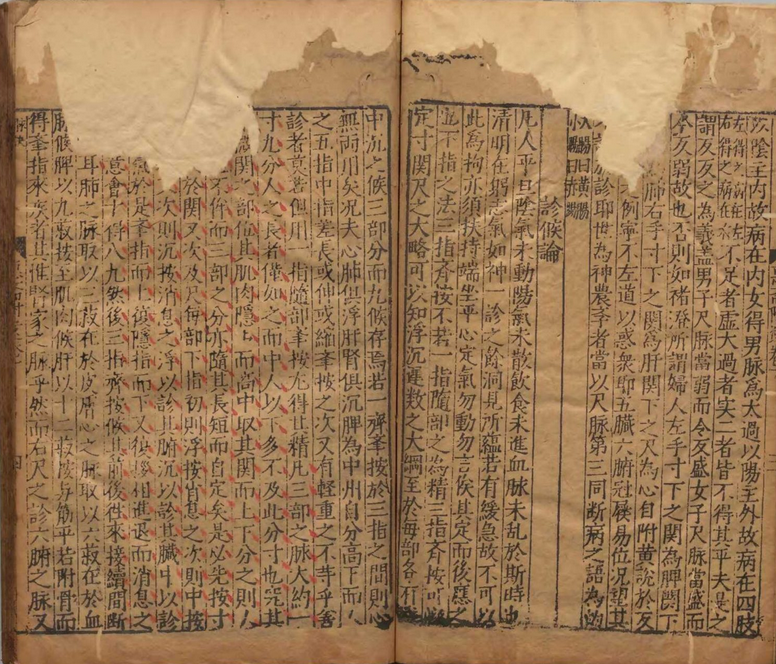 以陰主内故病在内女得男脉為太過以陽主外故病在四肢
左得之病在左
右得之病在右
不足者虛大過者実二者皆不得其平夫是之
謂反反之為義蓋男子尺脉當弱而今反盛女子尺脉當盛而
今反弱故也否則如禇澄所謂婦人左手寸下之関為脾関下
肺右手寸下之関為肝関下之尺為心自附黄說於友
例寧不左道以惑衆耶五臓六腑冠屨易位况望其
診耶世為神農孝者當以尺脉第三同断病之語為的
診候論
凡人平旦陰氣未動陽氣未散飲食未進血脉未乱於斯時也
清明在躬志氣如神一診之餘洞見所蘊若有緩急故不可以
此為拘亦須扶持端坐平心定氣勿動勿言俟其定而後應之
並下指之法三指齊按不若一指隨部之為精三指齊按可以
定寸関尺之大略可以知浮沉遲数之大綱至於毎部各有
中沉之候三部分而九候存焉若一齊挙按於三指之間則心
無両用矣况夫心肺俱浮肝腎俱沉脾為中州自分高下而人
之五指中指差長或伸或縮挙按之次又有輕重之不等乎善
診者莫若但用一指隨部挙按尤得其精凡三部之脉大約一
寸九分人之長者僅如之而中人以下多不及此分寸也究其
関之部位其肌肉隱上而高中取其関而上下分之則人
不侔而三部之分亦隨其長短而自定矣是以先按寸
於関又次及尺毎部下指初則浮按肖息之次則中按
次則沉按消息之浮以診其腑沉以診其臓中以診
氣於是挙指而上復隱指而下又往復相進退而消息之
意會于得八九然後三指齊按候其前後徃来接續間断
耳肺之脉取以三菽在於皮膚心之脉取以六菽在於血
脉候脾以九菽按至肌肉候肝以十二菽按与筋平若附骨而
得挙指来疾者其惟腎家之脉乎然而右尺之診六腑之脉又